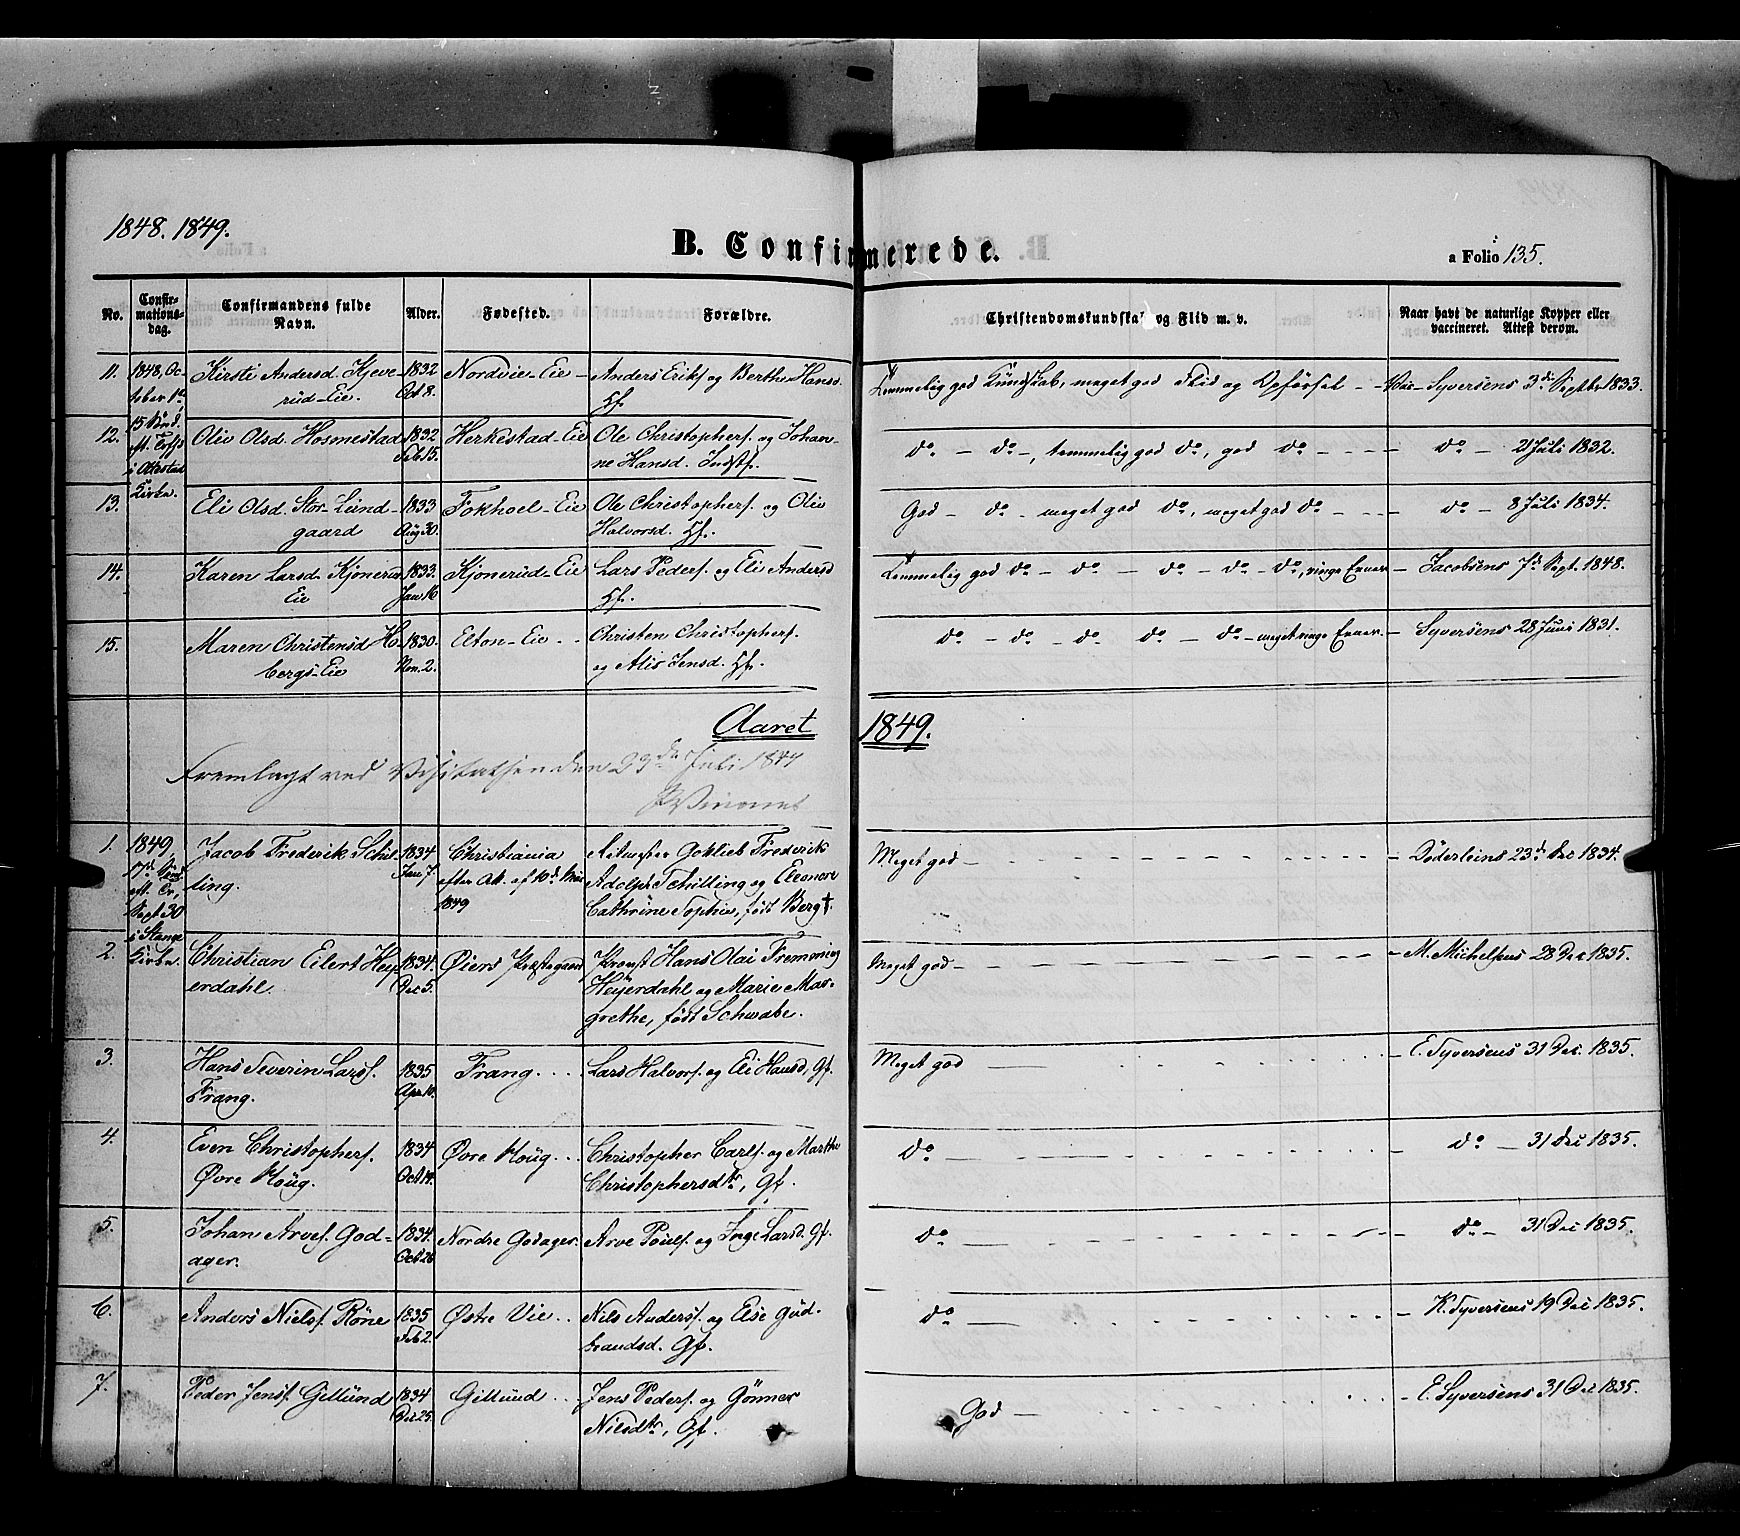 1848. 1849.
B. Confirmerede.
a Folio 135.
No.
Confir-
mations-
dag.
Confirmandens fulde
Navn.
Alder.
Fødested.
Forældre.
Christendomskundskab og Flid m. v.
Naar havt de naturlige Kopper eller
vaccineret. Attest derom.
11. 1848, Oc- Kirsti Andersd. Kjeve- 1832 Nordvie-Eie Anders Eriks. og Berthe Hansd. Temmelig god Kundskab, meget god Flid og Opførsel - Syversens 3die Septbr 1833.
tober 1ste rud-Eie. Oct 8. Hf.
12. 15 Sønd. Oliv Olsd. Hosmestad 1832 Herkestad-Eie Ole Christophers. og Johan- do - do -, temmelig god do, god do - do - 21 Juli 1832.
eft. Trefs. Feb. 15. ne Hansd. Indstf.
i Ottestad
Kirke.
13. Eli Olsd. Stor-Lund- 1833 Fokhoel-Eie Ole Christophers. og Oliv God - do - meget god do, meget god do - do - 8 Juli 1834.
gaard Aug 30. Halvorsd. Hf.
14. Karen Larsd. Kjonerud 1833. Kjonerud-Eie Lars Peders. og Eli Andersd Temmelig god do - do - do - do - do, ringe Evner - Jacobsens 7de Sept. 1848.
Eie Jan 16 Hf.
15. Maren Christensd Ho- 1830. Elton-Eie Christen Christophers. do - do - do - do - do - meget ringe Evner - Syversens 28 Juni 1831.
bergs-Eie Nov. 2. og Alis Jensd. Hf.
Aaret 1849.
Fremlagt ved Visitatsen den 23de Juli 1849
1. 1849 Jacob Frederik Schil- 1834 Christiania Ritmester Gotlieb Frederik Meget god - Döderleins 23de Dec 1834.
17de Sønd ling. Jan 7. efter Att. af 10de Mai Adolph Schilling og Eleonore
eft. Tr. 1849 Cathrine Sophie, født Berg †.
Sept 30
i Stange
Kirke.
2. Christian Eilert Hey- 1834. Øiers Præstegaard Provst Hans Olai Fremming Meget god - M. Michelsens 28 Dec 1835.
erdahl. Dec 5. Heyerdahl og Marie Mar-
grethe, født Schwabe.
3. Hans Severin Lars. 1835 Frang. Lars Halvors. og Eli Hansd, Gf. Meget god - E. Syversens 31 Dec. 1835.
Frang. Apr 10.
4. Even Christophers. 1834 Øvre Houg Christopher Carls. og Marthe do - do - 31 Dec 1835.
Øvre Houg. Oct 14. Christophersdtr, Gf.
5. Johan Arves. God- 1834. Nordre Godager. Arve Pouls. og Inge Larsd. Gf. do - do - 31 Dec 1835.
ager. Oct 28
6. Anders Niels. Röne 1835 Østre Vie Nils Anders. og Else Gud- do - K. Syversens 19 Dec 1835.
Feb 2. brandsd. Gf.
7. Peder Jens. Gillund 1834 Gillund Jens Peders. og Gönner God - E. Syversens 31 Dec 1835.
Dec 25. Nilsdtr, Gf.